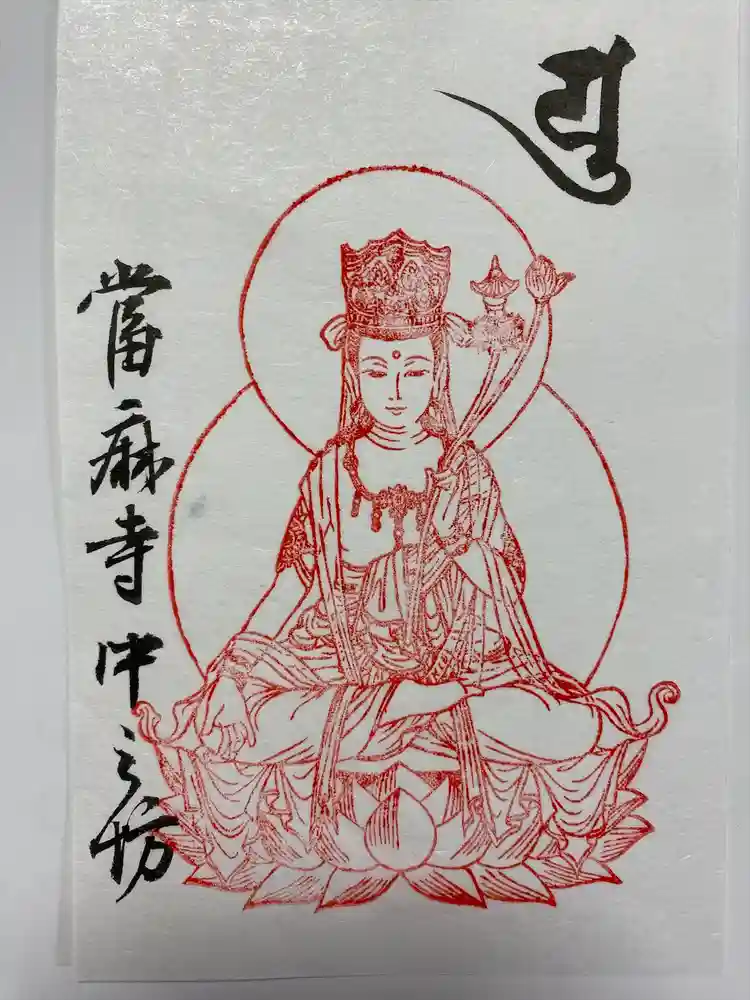 𑖧𑖲
當麻寺中之坊